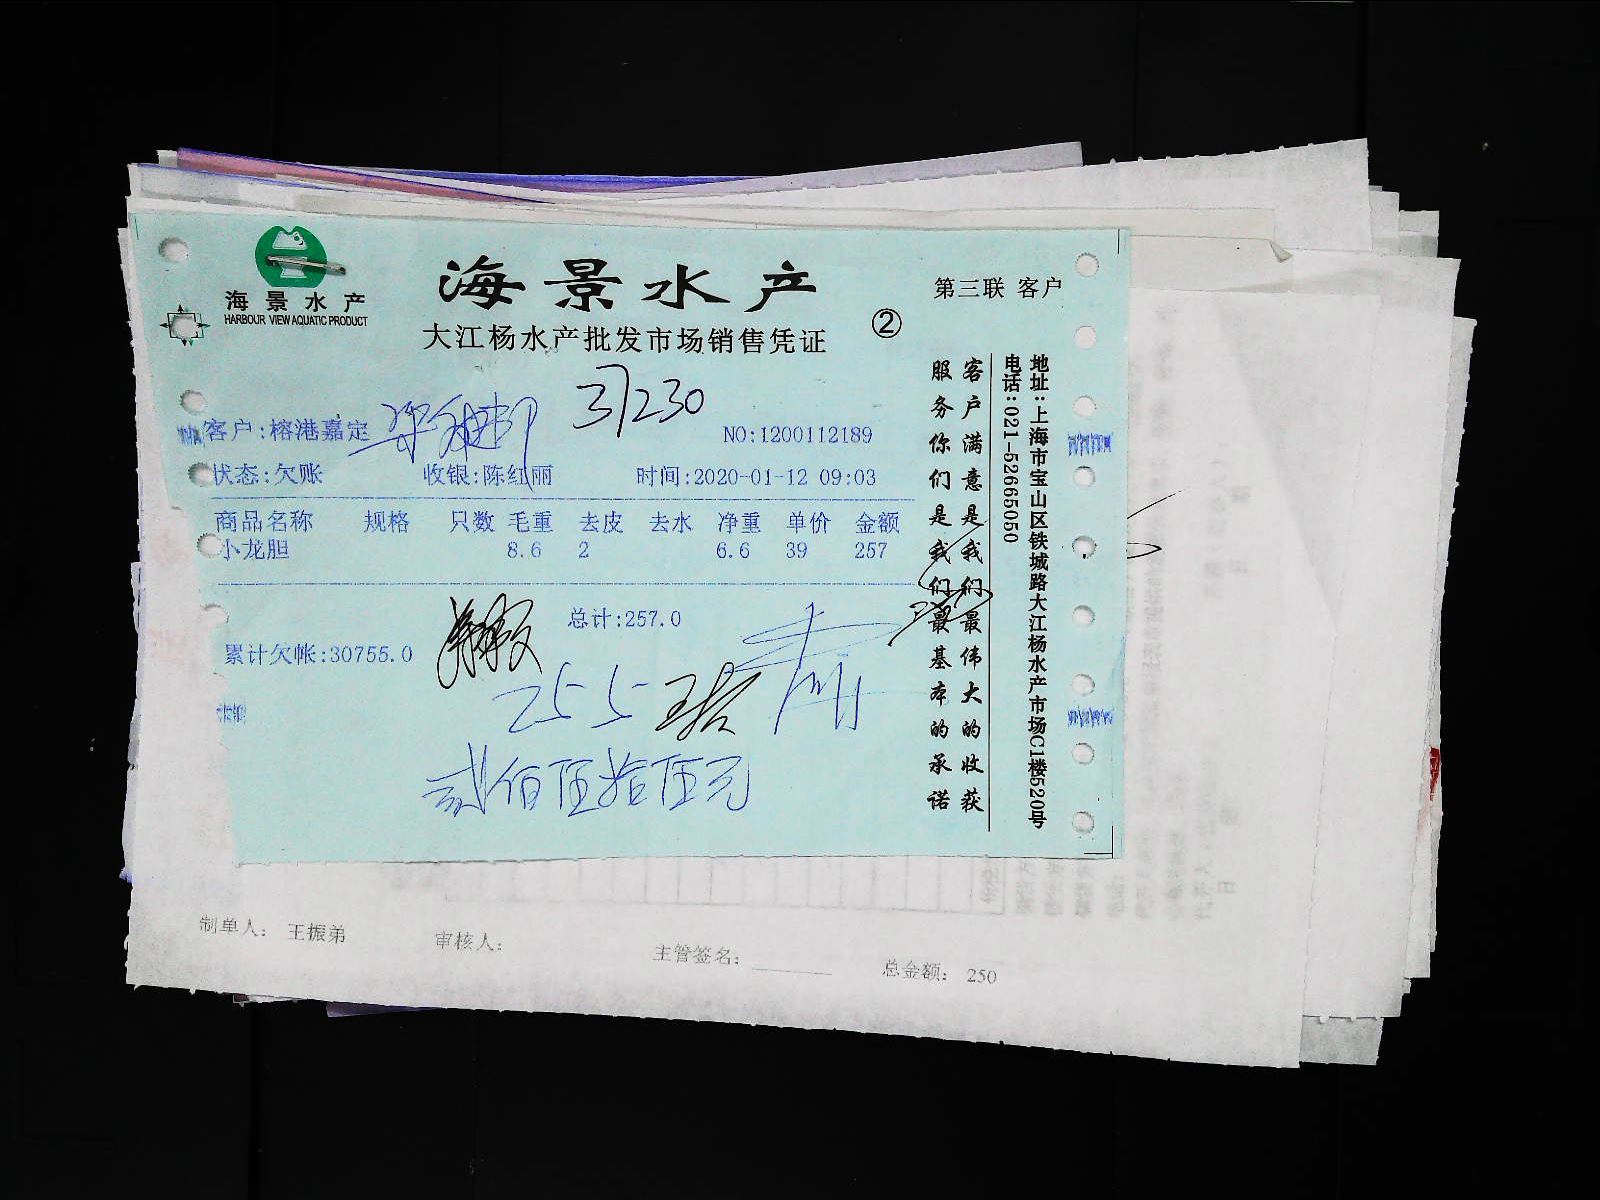 海景水产
HARBOUR VIEW AQUATIC PRODUCT
海景水产
大江杨水产批发市场销售凭证
②
第三联 客户
37230
客户:榕港嘉定
NO:1200112189
状态:欠账 收银:陈红丽 时间:2020-01-12 09:03
商品名称 规格 只数 毛重 去皮 去水 净重 单价 金额
小龙胆 8.6 2 6.6 39 257
总计:257.0
累计欠帐:30755.0
255
贰佰伍拾伍元
客户满意是我们最伟大的收获
服务你们是我们最基本的承诺
地址:上海市宝山区铁城路大江杨水产市场C1楼520号
电话:021-52665050
制单人: 王振弟 审核人: 主管签名: 总金额: 250